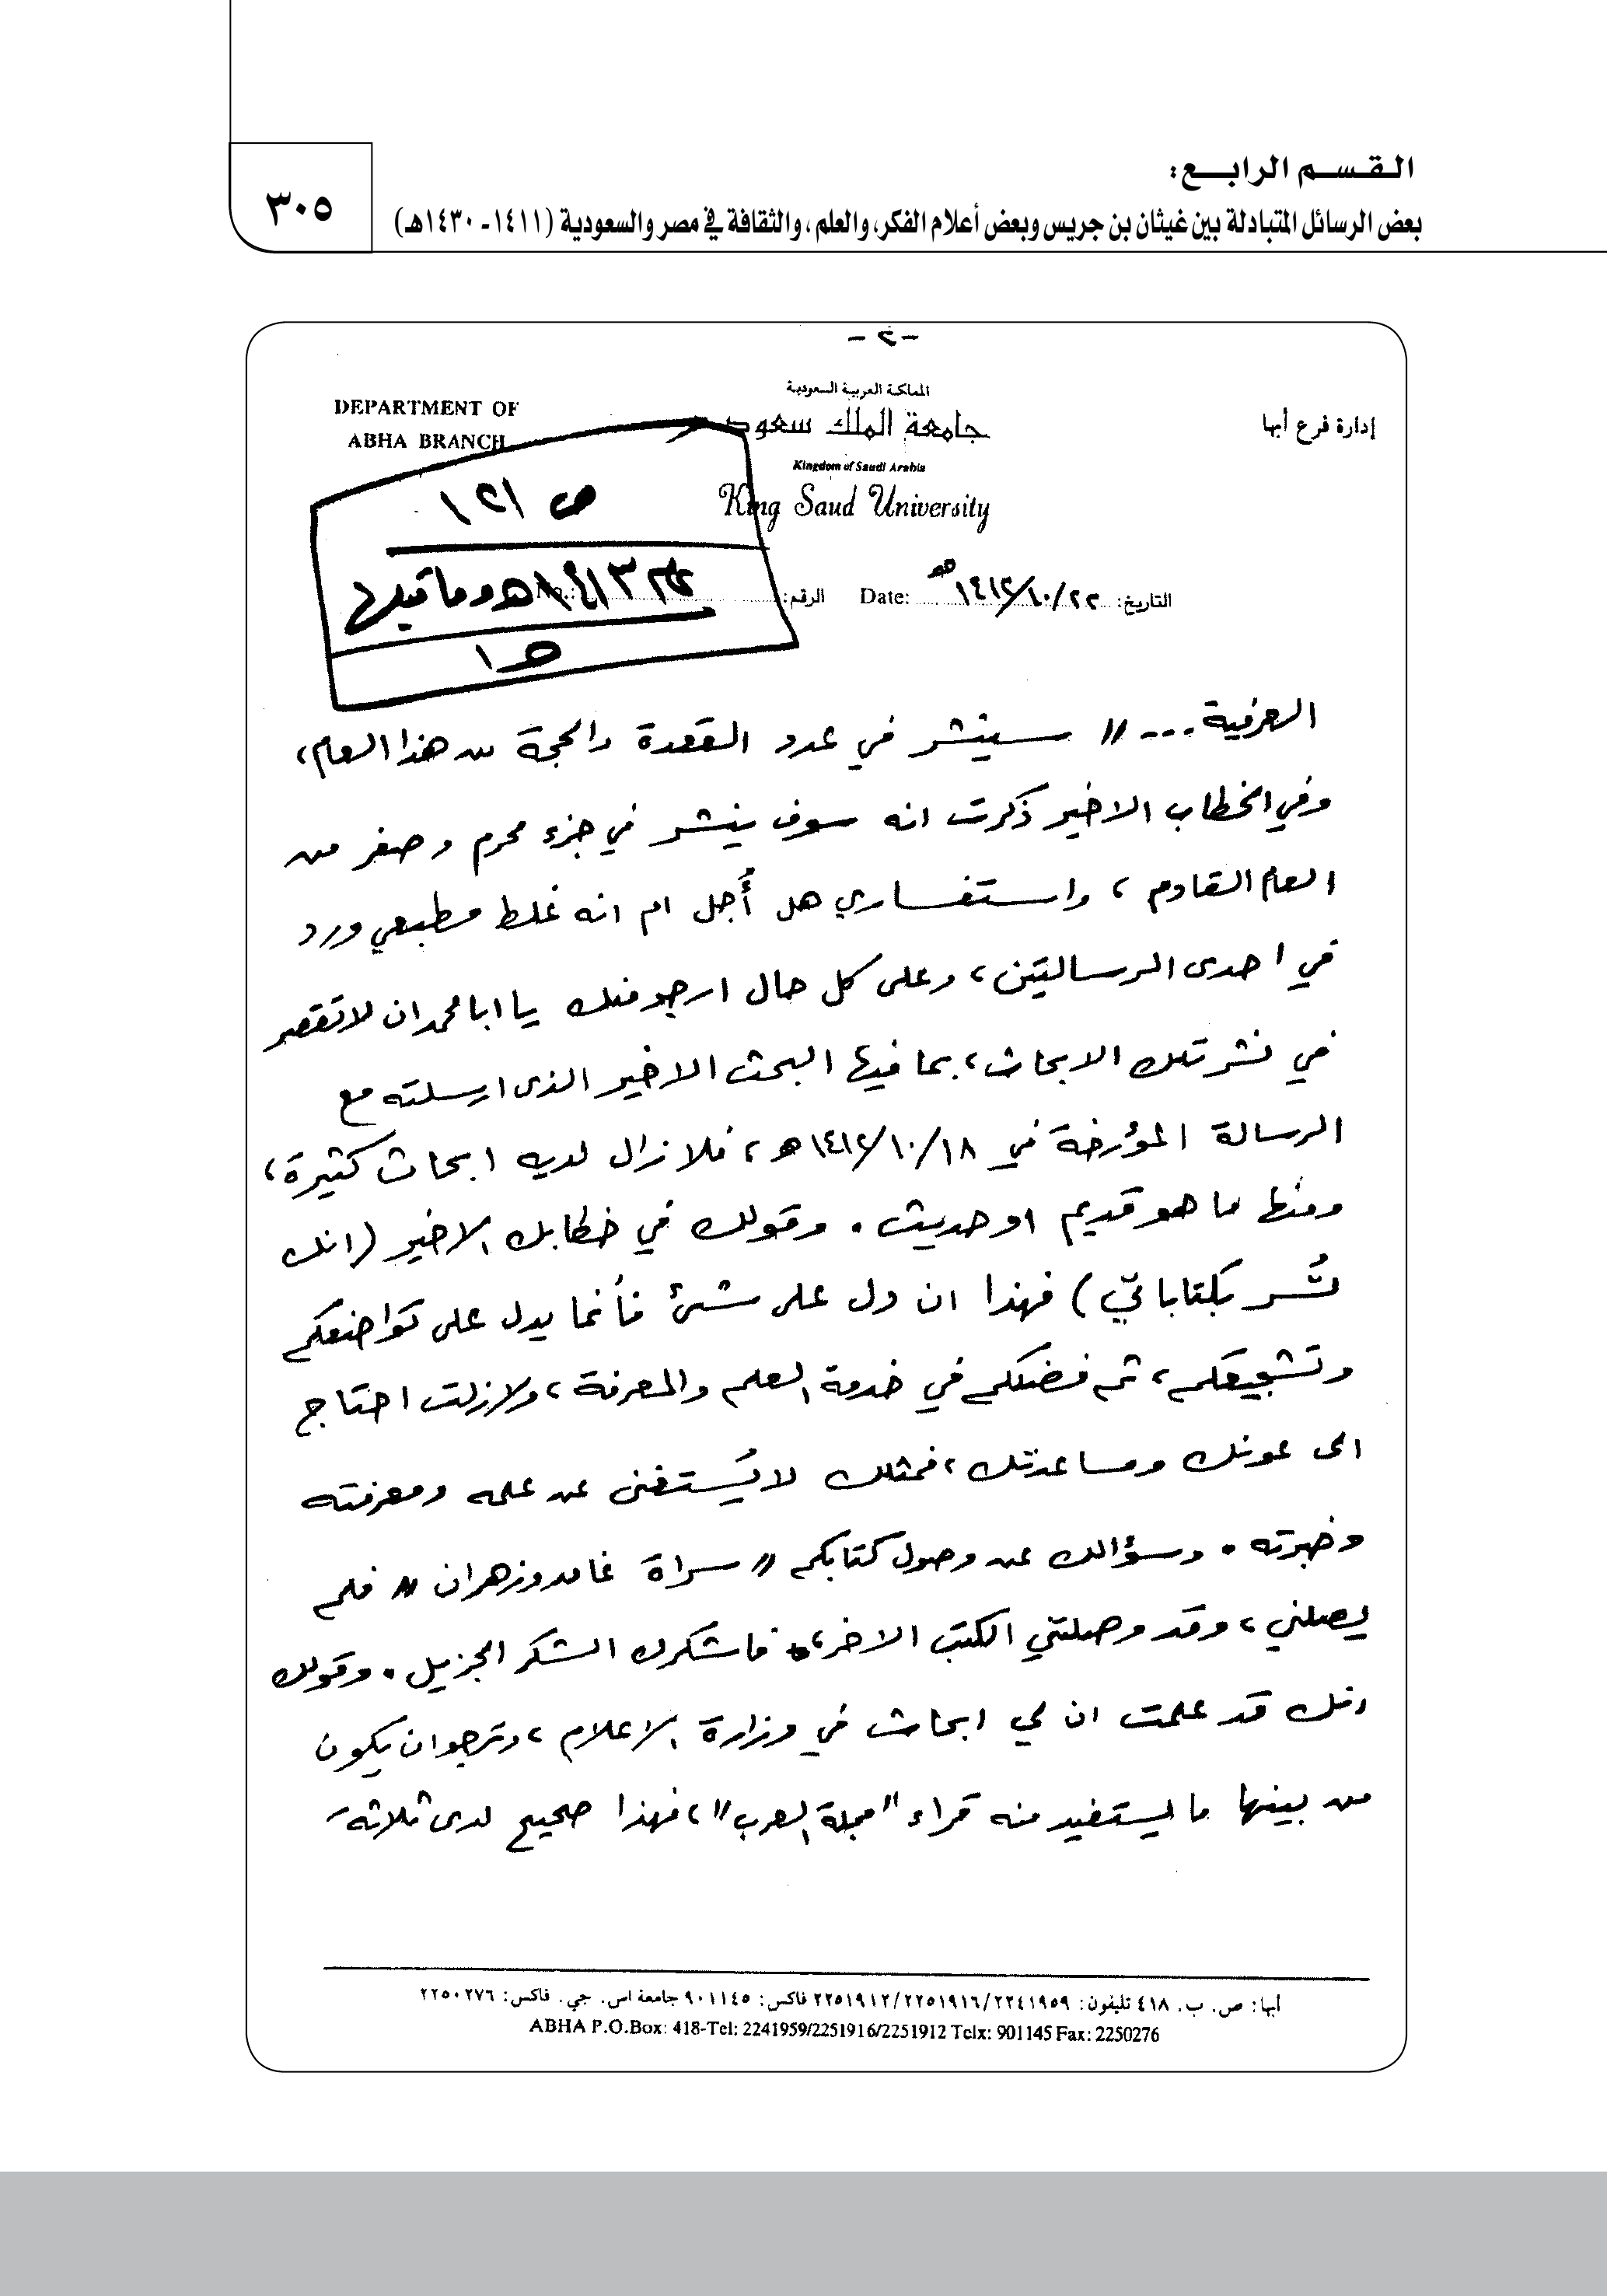 القسم الرابع:
بعض الرسائل المتبادلة بين غيثان بن جريس وبعض أعلام الفكر، والعلم، والثقافة في مصر والسعودية (١٤١١ـ ١٤٣٠هـ)
٣٠٥
-٢-
المملكة العربية السعودية
جامعة الملك سعود
Kingdom of Saudi Arabia
King Saud University
إدارة فرع أبها
DEPARTMENT OF
ABHA BRANCH
ص ١٢١
عام ١٤١٣هـ وما قبلها
هـ ١
التاريخ: ١٤١٢/١٠/٢٢هـ Date: الرقم: No.:
العرفية...» سينشر في عدد القعدة والحجة من هذا العام،
وفي الخطاب الاخير ذكرت انه سوف ينشر في جزء محرم وصفر من
العام القادم، واستفساري هل أُجل ام انه غلط مطبعي ورد
في احدى الرسالتين، وعلى كل حال ارجو منك يا ابا محمد ان لا تقصر
في نشر تلك الابحاث، بما فيها البحث الاخير الذى ارسلته مع
الرسالة المؤرخة في ١٤١٢/١٠/١٨هـ، فلا زال لديه ابحاث كثيرة،
ومنها ما هو قديم او حديث. وقولك في خطابك الاخير (انك
تُسر بكتاباتي) فهذا ان دل على شئ فأنما يدل على تواضعكم
وتشجيعكم، ثم فضلكم في خدمة العلم والمعرفة، ولازلت احتاج
الى عونك ومساعدتك، فمثلك لا يُستغنى عن علمه ومعرفته
وخبرته. وسؤالك عن وصول كتابكم «سراة غامد وزهران» فلم
يصلني، وقد وصلتني الكتب الاخر، فاشكرك الشكر الجزيل. وقولك
انك قد علمت ان لي ابحاث في وزارة الاعلام، وترجو ان يكون
من بينها ما يستفيد منه قراء "مجلة العرب"، فهذا صحيح لدى ثلاثة
أبها: ص. ب. ٤١٨ تليفون: ٢٢٤١٩٥٩/٢٢٥١٩١٦/٢٢٥١٩١٢ فاكس: ٩٠١١٤٥ جامعة اس. جي. فاكس: ٢٢٥٠٢٧٦
ABHA P.O.Box: 418-Tel: 2241959/2251916/2251912 Telx: 901145 Fax: 2250276